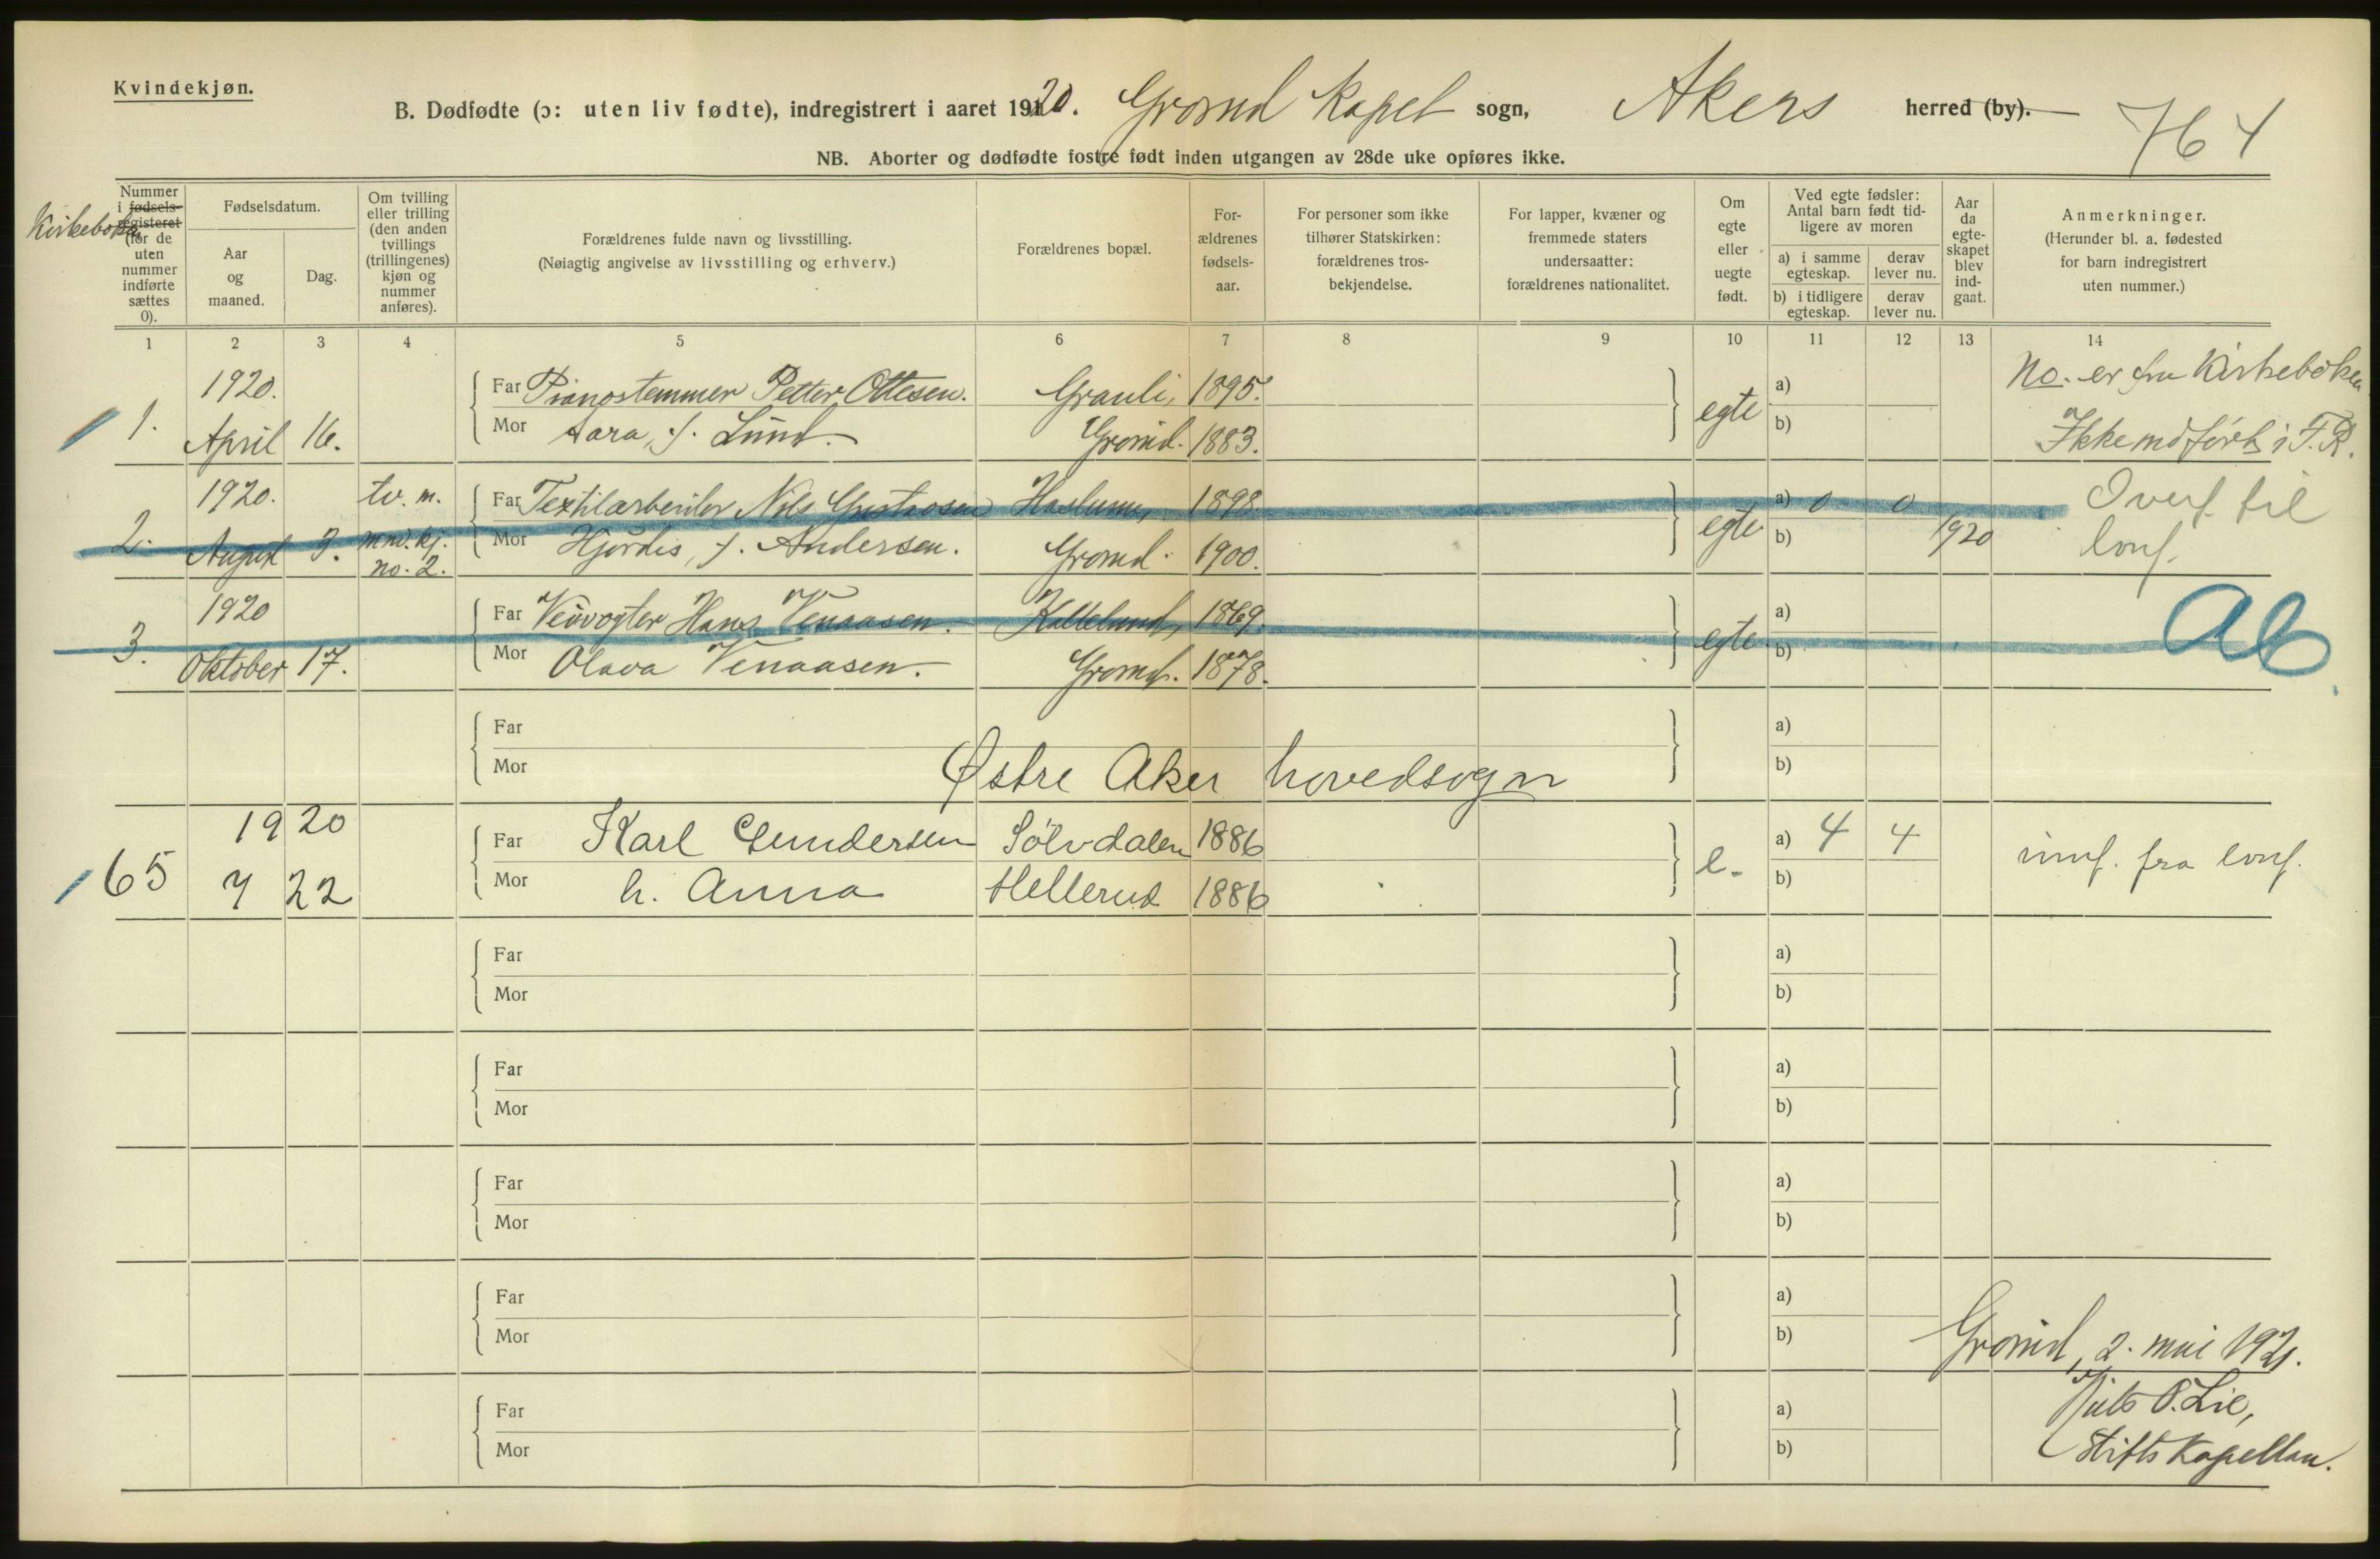 Kvindekjøn.
B. Dødfødte (ɔ: uten liv fødte), indregistrert i aaret 1920. Grorud Kapel sogn, Akers herred (by).
764
NB. Aborter og dødfødte fostre født inden utgangen av 28de uke opføres ikke.
Nummer i fødsels-registeret (for de uten nummer indførte sættes 0).
Kirkeboka
Fødselsdatum.
Aar og maaned.
Dag.
Om tvilling eller trilling (den anden tvillings (trillingenes) kjøn og nummer anføres).
Forældrenes fulde navn og livsstilling.
(Nøiagtig angivelse av livsstilling og erhverv.)
Forældrenes bopæl.
For-ældrenes fødsels-aar.
For personer som ikke tilhører Statskirken: forældrenes tros-bekjendelse.
For lapper, kvæner og fremmede staters undersaatter: forældrenes nationalitet.
Om egte eller uegte født.
Ved egte fødsler: Antal barn født tid-ligere av moren
a) i samme egteskap.
derav lever nu.
b) i tidligere egteskap.
derav lever nu.
Aar da egte-skapet blev ind-gaat.
Anmerkninger.
(Herunder bl. a. fødested for barn indregistrert uten nummer.)
1 2 3 4 5 6 7 8 9 10 11 12 13 14
1920. Far Pianostemmer Petter Ottesen. Grauli, 1895. a) No. er fra Kirkeboken
1. April 16. Mor Aara, f. Lund. Grorud. 1883. egte b) Ikke medført i F.R.
1920. tv. m. Far Textilarbeider Nils Gustavsen Haslum, 1898. a) 0 0 Overf. til
2. August 3. mnd. kj. no. 2. Mor Hjørdis, f. Andersen. Grorud. 1900. egte b) 1920 levf.
1920 Far Veivogter Hans Venaasen. Kallelund, 1869. a)
3. Oktober 17. Mor Olava Venaasen. Grorud. 1878. egte b) Ab.
Far a)
Mor b)
Østre Aker hovedsogn
1920 Far Karl Gundersen Sölvdalen 1886 a) 4 4
65 7 22 Mor h. Anna Hellerud 1886 e. b) innf. fra levf.
Far a)
Mor b)
Far a)
Mor b)
Far a)
Mor b)
Far a)
Mor b)
Grorud, 2. mai 1921.
Far a)
Mor b)
O. Lie,
Stiftskapellan.